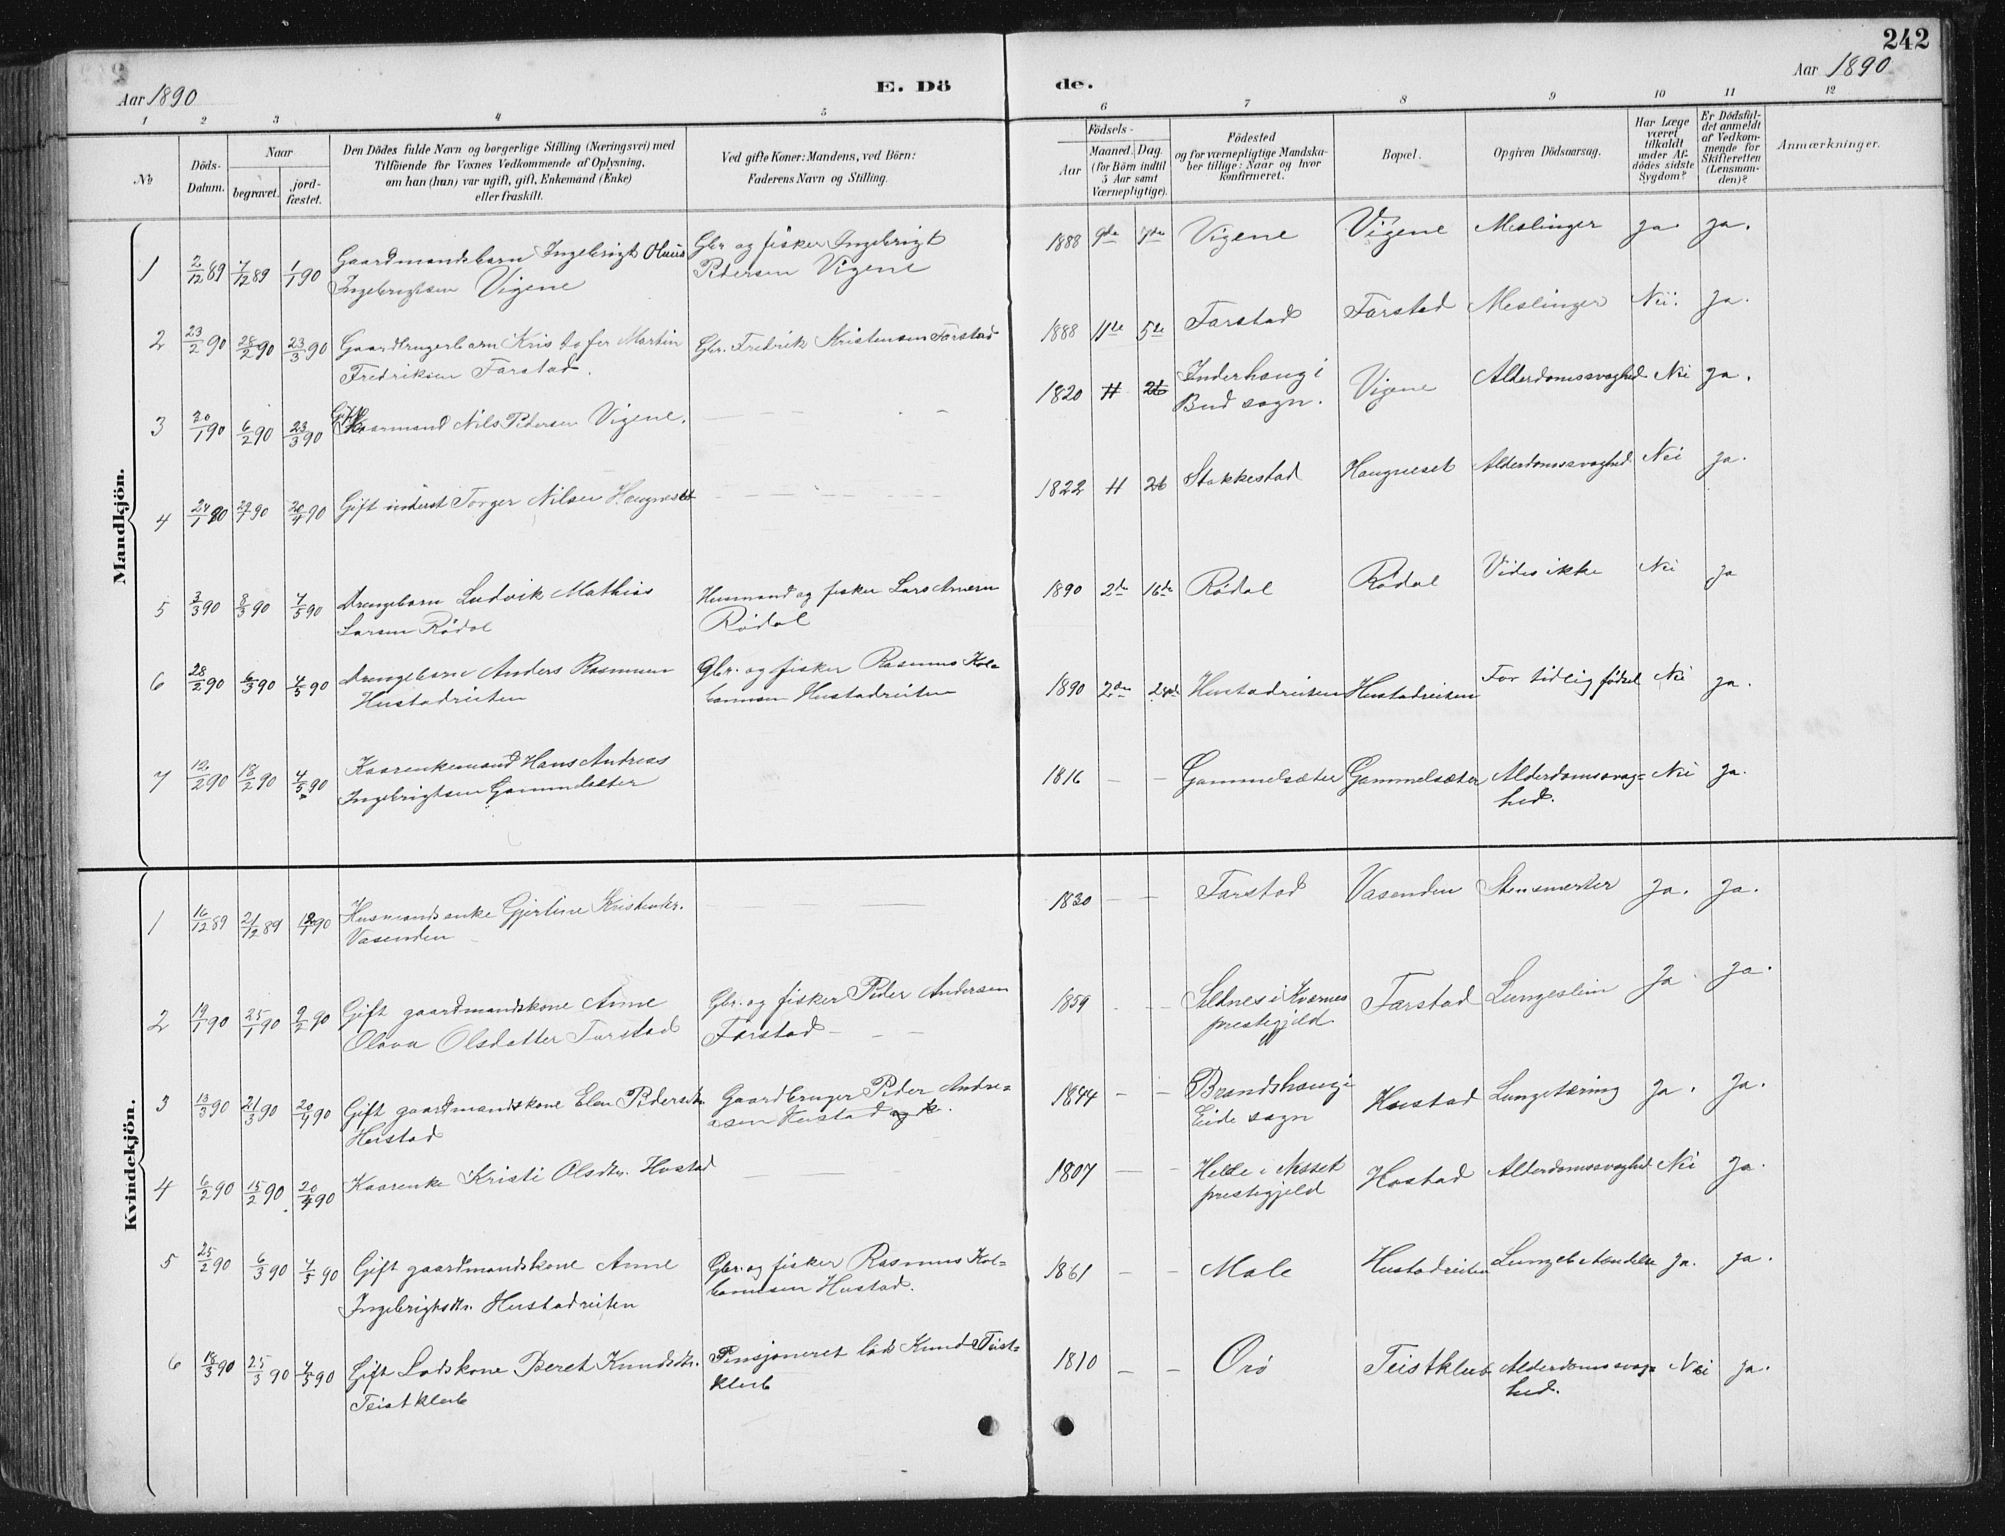 242
Aar 1890
E. Dö
de.
Aar 1890
1 2 3 4 5 6 7 8 9 10 11 12
No
Döds-
Datum.
Naar
begravet.
jord-
fæstet.
Den Dödes fulde Navn og borgerlige Stilling (Næringsvei) med
Tilföiende for Voxnes Vedkommende af Oplysning,
om han (hun) var ugift, gift, Enkemand (Enke)
eller fraskilt.
Ved gifte Koner: Mandens, ved Börn:
Faderens Navn og Stilling.
Födsels-
Aar
Maaned. Dag.
(for Börn indtil
5 Aar samt
Værnepligtige).
Födested
og for værnepligtige Mandska-
ber tillige: Naar og hvor
konfirmeret.
Bopæl.
Opgiven Dödsaarsag.
Har Læge
været
tilkaldt
under Af-
dödes sidste
Sygdom?
Er Dödsfal-
det anmeldt
af Vedkom-
mende for
Skifteretten
(Lensman-
den)?
Anmærkninger.
Mandkjön.
1 2/12 89 7/12 89 1/1 90 Gaardmandsbarn Ingebrigt Olaus
Ingebrigtsen Vigene
Gbr og fisker Ingebrigt
Pedersen Vigene
1888 9de Vigene Vigene Meslinger ja ja.
2 23/2 90 28/2 90 23/3 90 Gaardbrugerbarn Kristofer Martin
Fredriksen Farstad.
Gbr. Fredrik Kristensen Farstad
1888 11te 5te Farstad Farstad Meslinger Nei. ja.
3 30/1 90 6/2 90 23/3 90 Gift Kaarmand Nils Pedersen Vigene.
1820 11 26 Inderhaug i
Bud sogn.
Vigene Alderdomssvaghed Nei ja.
4 24/1 90 29/1 90 20/4 90 Gift inderst Torger Nilsen Haugneset
1822 11 26 Stokkestad Haugneset Alderdomssvaghed Nei ja.
5 3/3 90 8/3 90 4/5 90 Drengebarn Ludvik Mathias
Larsen Rödal
Husmand og fisker Lars
Rödal
1890 2den 16de Rödal Rödal Vides ikke Nei ja
6 28/2 90 6/3 90 4/5 90 Drengebarn Anders Rasmusen
Hustadreiten
Gbr. og fisker Rasmus Kol-
bemsen Hustadreiten
1890 2den Hustadreiten Hustadreiten For tidlig födsel Nei ja.
7 12/2 90 18/2 90 4/5 90 Kaarenkemand Hans Andreas
Ingebrigtsen Gammelsæter
1816 — — Gammelsæter Gammelsæter Alderdomssvag-
hed.
Nei ja.
Kvindekjön.
1 16/12 89 21/12 89 Husmandsenke Gjertine Kristensdtr.
Vasenden
1830 — — Farstad Vasenden Stensmerter ja. ja.
2 19/1 90 25/1 90 9/2 90 Gift gaardmandskone Anne
Olava Olsdatter Farstad
Gbr. og fisker Peder Andersen
Farstad
1859 — — Seldnes i Kvernes
prestegjeld
Farstad Lungeslim ja ja.
3 13/3 90 21/3 90 20/4 90 Gift gaardmandskone Elen Pedersdtr.
Hustad
Gaardbruger Peder Andre-
asen Hustad og k.
1844 — — Brandshaug i
Eide sogn
Hustad Lungetæring ja. ja.
4 6/2 90 15/2 90 20/4 90 Kaarenke Kristi Olsdtr. Hustad
1807 — — Helde i Nesset
prestegjeld
Hustad Alderdomssvaghed Nei ja.
5 25/2 90 6/3 90 4/5 90 Gift gaardmandskone Anne
Ingebrigtsdtr. Hustadreiten
Gbr. og fisker Rasmus Kol-
bemsen Hustad.
1861 — — Male Hustadreiten Lungebetændelse ja. ja.
6 18/3 90 25/3 90 4/5 90 Gift Lodskone Beret Knudsdtr.
Teistklub
Pensjoneret lods Knud Teist-
klub
1810 — — Orö Teistklub Alderdomssvag-
hed.
Nei ja.